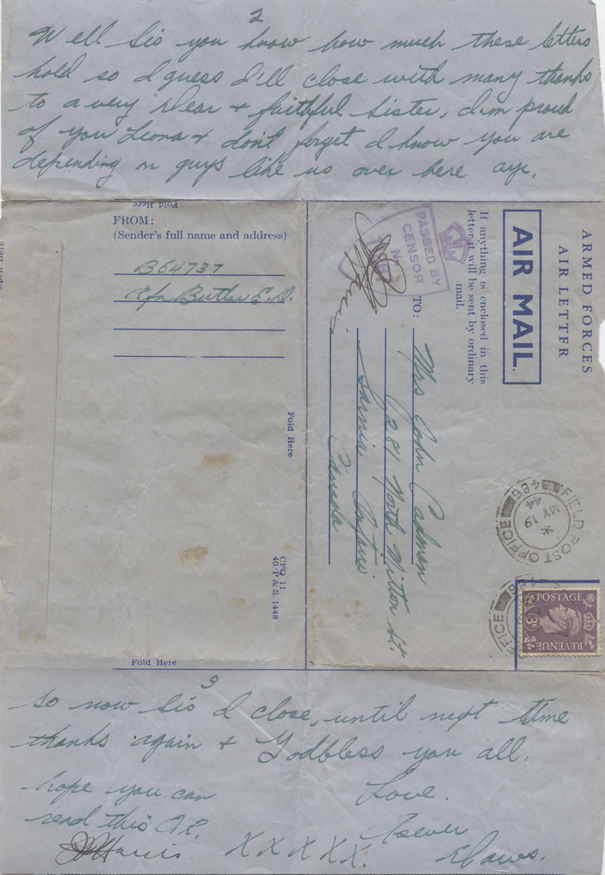 2
Well Sis you know how much these letters
hold so I guess I'll close with many thanks
to a very Dear + faithful Sister, I'm proud
of you Leona + don't forget I know you are
depending on guys like us over here aye.
Fold Here
FROM:
(Sender's full name and address)
B64737
Rfn Butler E.D.
Fold Here
CFQ 11
40/P & S. 1448
Fold Here
ARMED FORCES
AIR LETTER
AIR MAIL.
If anything is enclosed in this
letter it will be sent by ordinary
mail.
PASSED BY
CENSOR
No
TO:
Mrs John Cadman
281 North Milton St.
Sarnia Ontario
Canada
FIELD POST OFFICE
486
MY 19
44
OFFICE
POSTAGE
3D
REVENUE
3
So now Sis I close, until next time
thanks again + Godbless you all.
hope you can
read this O.K.
Love.
Asever
X X X X X.
Harris